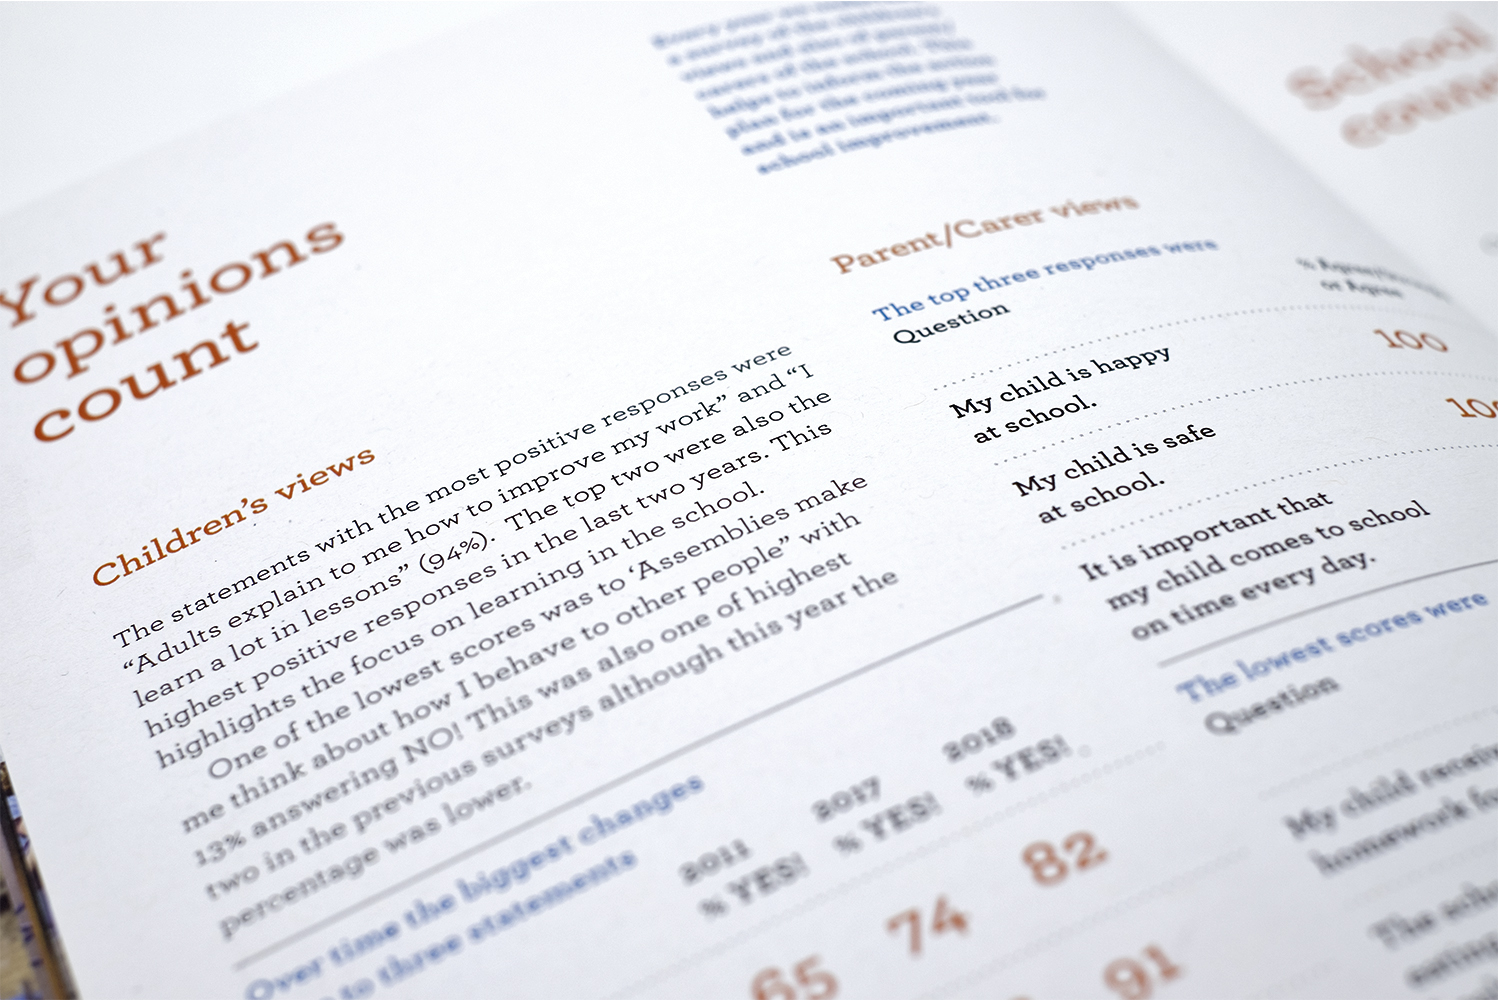 Your
opinions
count
Children's views
The statements with the most positive responses were
“Adults explain to me how to improve my work” and “I
learn a lot in lessons” (94%). The top two were also the
highest positive responses in the last two years. This
highlights the focus on learning in the school.
One of the lowest scores was to ‘Assemblies make
me think about how I behave to other people” with
13% answering NO! This was also one of highest
two in the previous surveys although this year the
percentage was lower.
Over time the biggest changes
to three statements
2011
% YES!
2017
% YES!
2018
% YES!
65
74
82
91
views and also of parent/
carers of the school. This
helps to inform the action
plan for the coming year
and is an important tool for
school improvement.
Parent/Carer views
The top three responses were
Question
% Agree
or Agree
My child is happy
at school.
100
My child is safe
at school.
It is important that
my child comes to school
on time every day.
The lowest scores were
Question
My child
homework
The
School